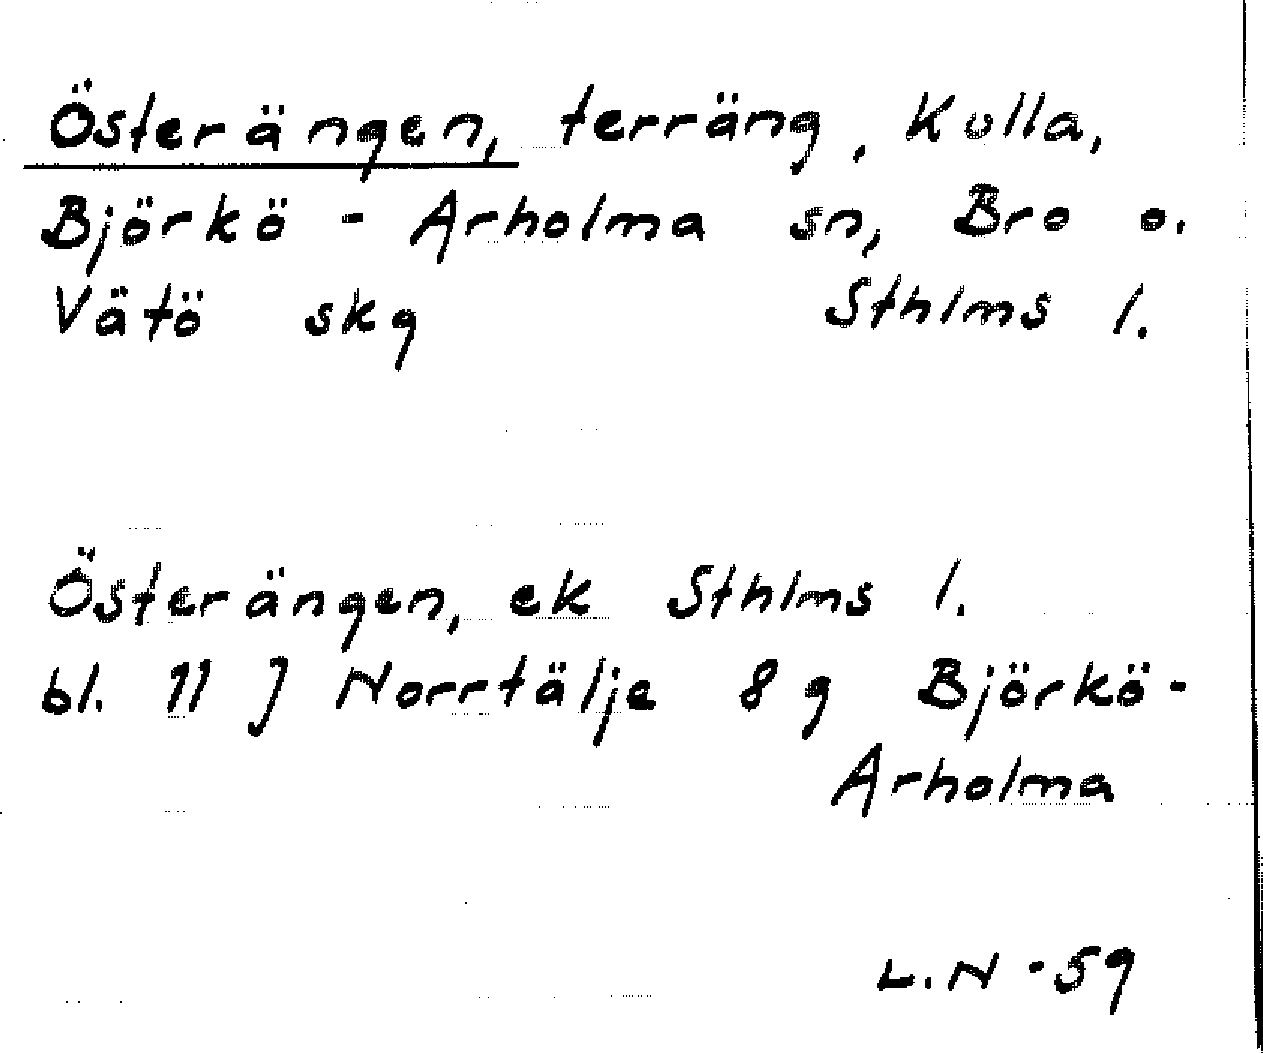 Österängen, terräng, Kulla,
Björkö - Arholma sn, Bro o.
Vätö skg Sthlms l.
Österängen, ek Sthlms l.
bl. 11 J Norrtälje 8 g Björkö-
Arholma
L.N -59